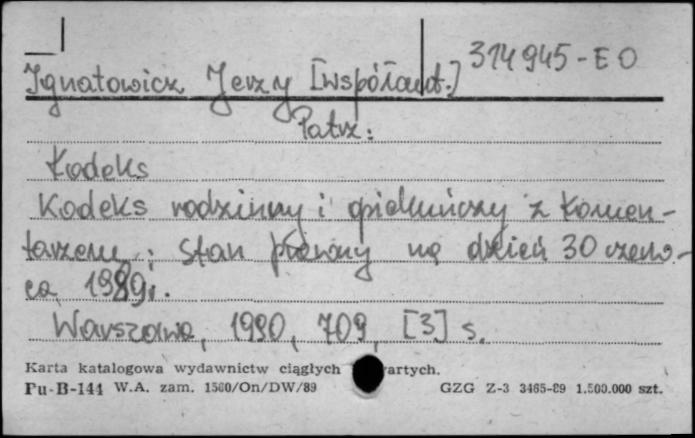 314945-EO
Ignatowicz Jerzy [współaut.]
Patrz:
Kodeks
Kodeks rodzinny i opiekuńczy z komen-
tarzem : stan prawny na dzień 30 czerw-
ca 1989r.
Warszawa, 1990, 709, [3] s.
Karta katalogowa wydawnictw ciągłych artych.
Pu-B-144 W.A. zam. 1560/On/DW/89 GZG Z-3 3465-89 1.500.000 szt.